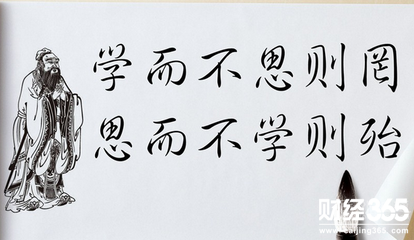 学而不思则罔
思而不学则殆
财经365
www.caijing365.com